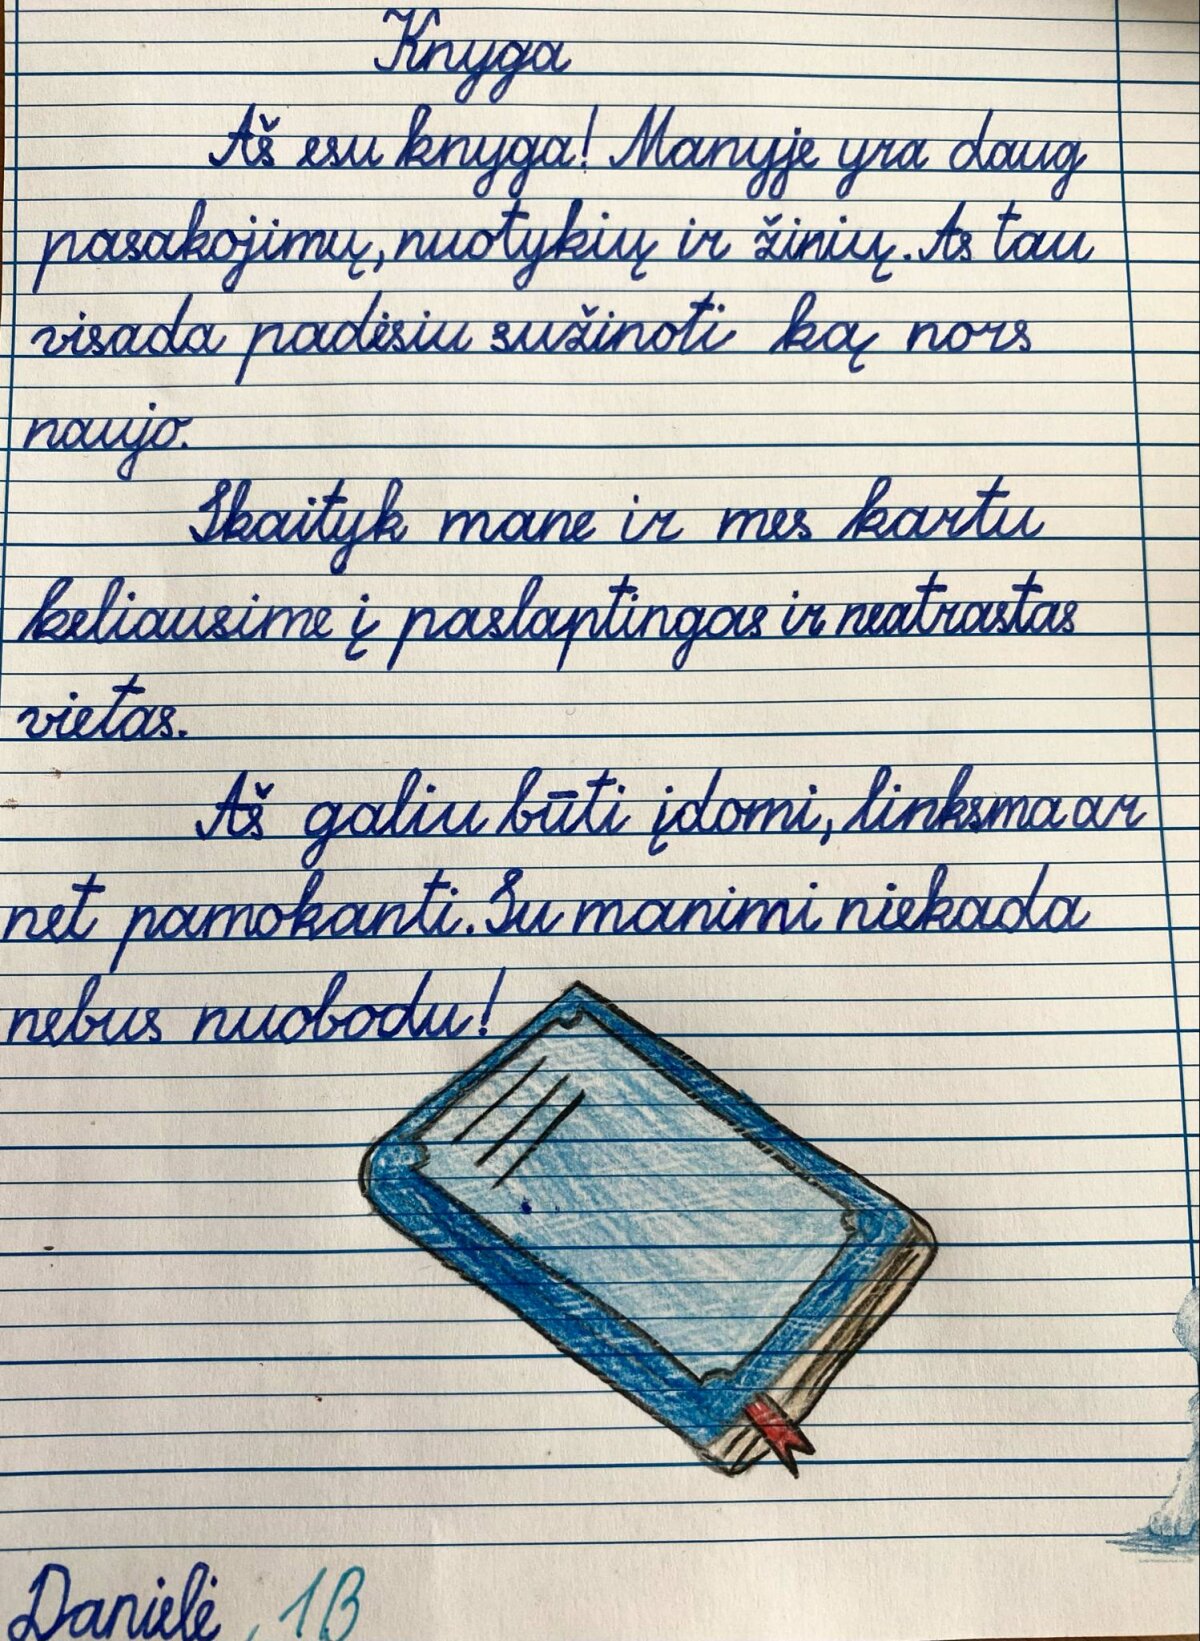 Knyga
Aš esu knyga! Manyje yra daug
pasakojimų, nuotykių ir žinių. As tau
visada padėsiu sužinoti ką nors
naujo.
Skaityk mane ir mes kartu
keliausime į paslaptingas ir neatrastas
vietas.
Aš galiu būti įdomi, linksma ar
net pamokanti. Su manimi niekada
nebus nuobodu!
Danielė, 1B